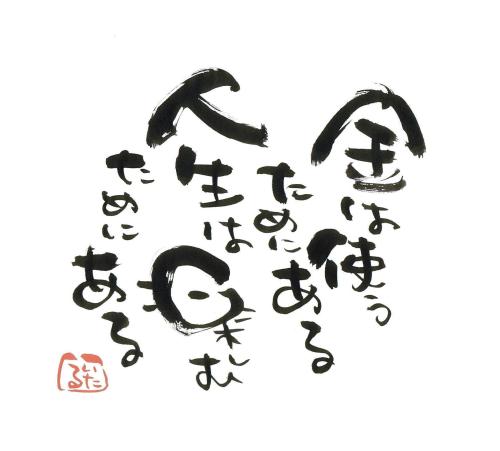 金は使う
ためにある
人生は楽しむ
ために
ある